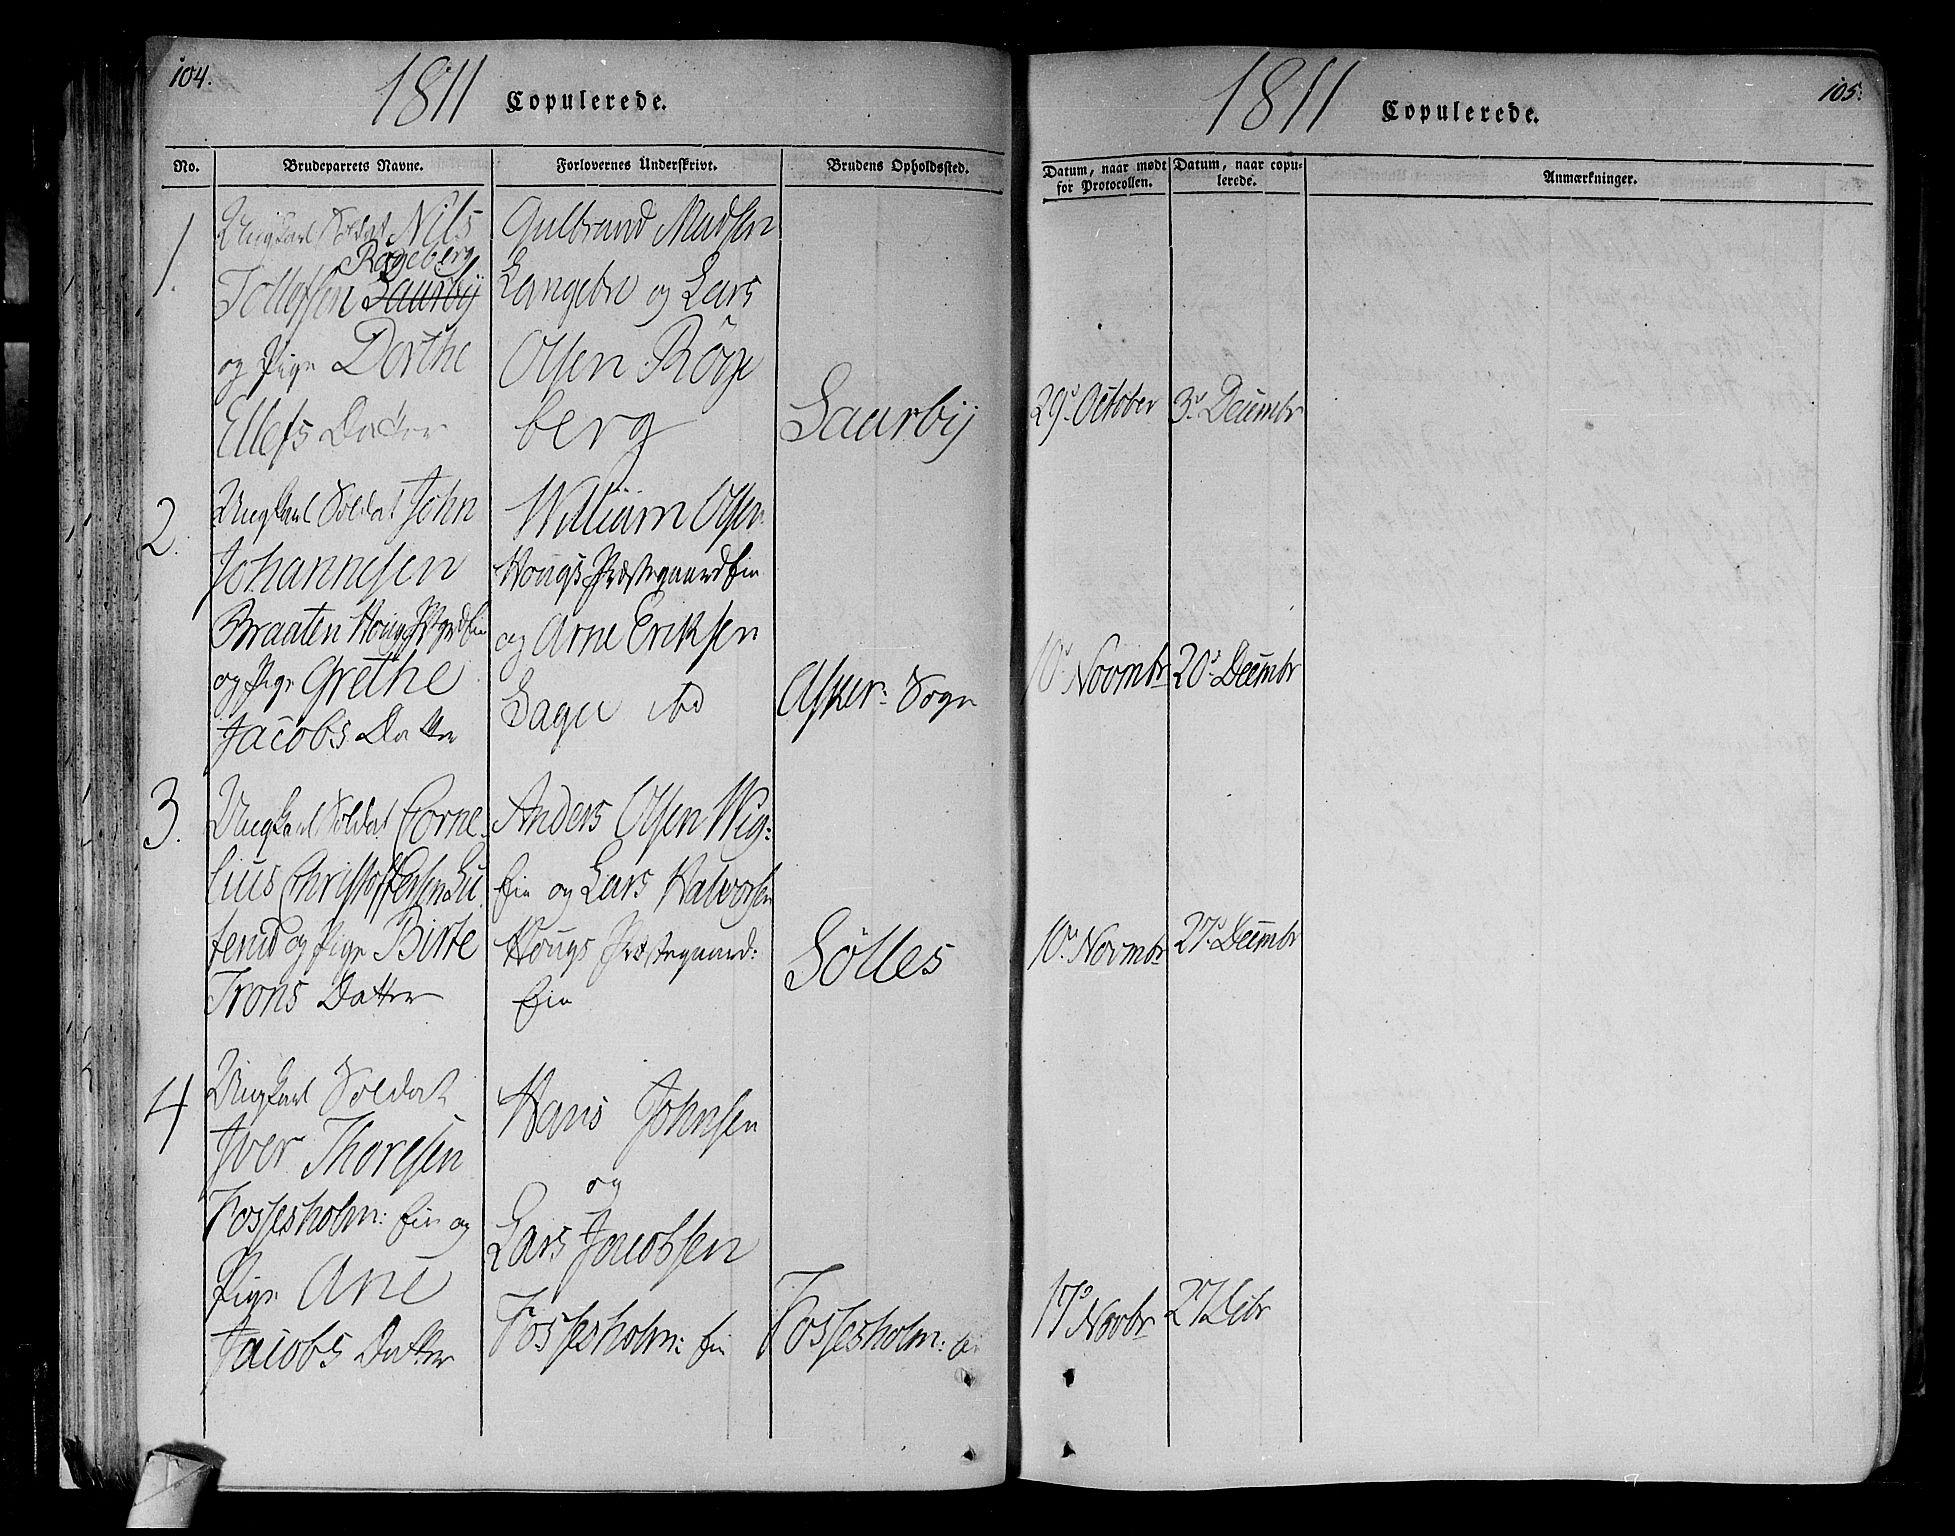 104.
1811
Copulerede.
No.
Brudeparrets Navne.
Forlovernes Underskrivt.
Brudens Opholdssted.
1.
Ungkarl Soldat Nils
Røgeberg
Tollefsen Saurbÿ
og Pige Dorthe
Ellefs Datter
Gulbrand Madsen
Langebr og Lars
Olsen Röge
berg
Saurbÿ
2.
Ungkarl Soldat John
Johannesen
Braaten Hougs Pstgrdein
og Pige Grethe
Jacobs Datter
William Olsen
Hougs Præstegaardein
og Arne Eriksen
Lager ibd
Asker: Sogn
3.
Ungkarl Soldat Corne-
lius Christoffersen Lu-
terud og Pige Birte
Trons Datter
Anders Olsen Wig:
ein og Lars Halvorsen
Hougs Præstegaard:
ein
Sölles
4
Ungkarl Soldat
Iver Thoresen
Fossesholm: ein og
Pige Ane
Jacobs Datter
Hans Johnsen
og
Lars Jacobsen
Fossesholm: ein
Fossesholm: ei
1811
Copulerede.
105.
Datum, naar mødt
for Protocollen.
Datum, naar copu-
lerede.
Anmærkninger.
29d. October
3d. Decembr
10d. Novmbr
20d. Decmbr
10d. Novmbr
27d. Decmbr
17d Novbr
27 Debr